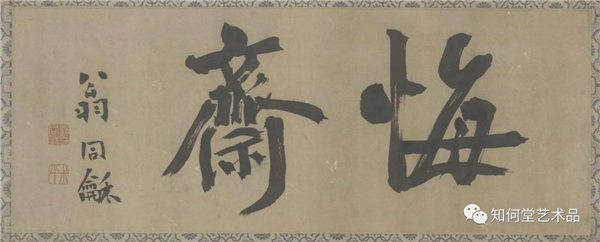 悔齋
翁同龢
知何堂艺术品